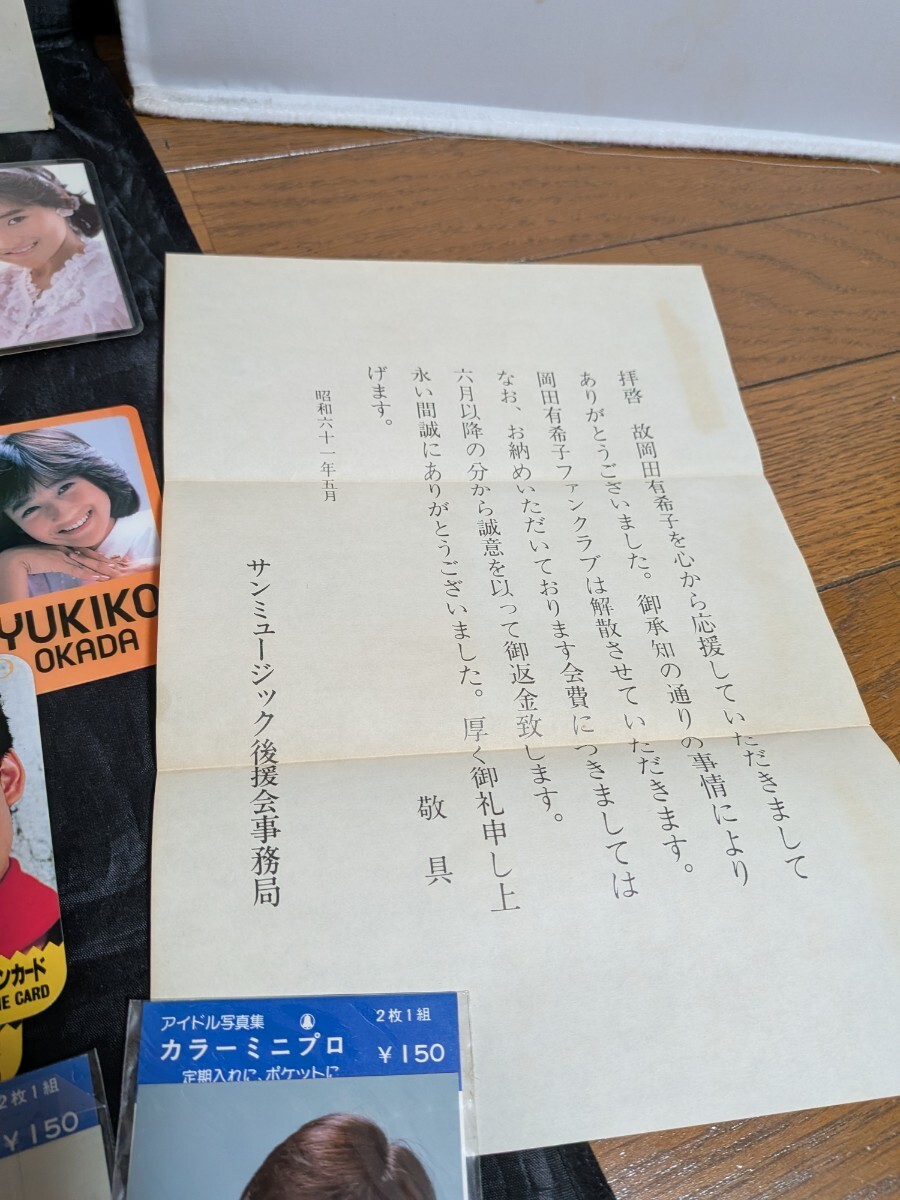 拝啓　故岡田有希子を心から応援していただきまして
ありがとうございました。御承知の通りの事情により
岡田有希子ファンクラブは解散させていただきます。
なお、お納めいただいております会費につきましては
六月以降の分から誠意を以って御返金致します。
永い間誠にありがとうございました。厚く御礼申し上
げます。
敬具
昭和六十一年五月
サンミュージック後援会事務局
YUKIKO
OKADA
ンカード
NE CARD
2枚1組
¥150
アイドル写真集
2枚1組
カラーミニプロ
¥150
定期入れに、ポケットに